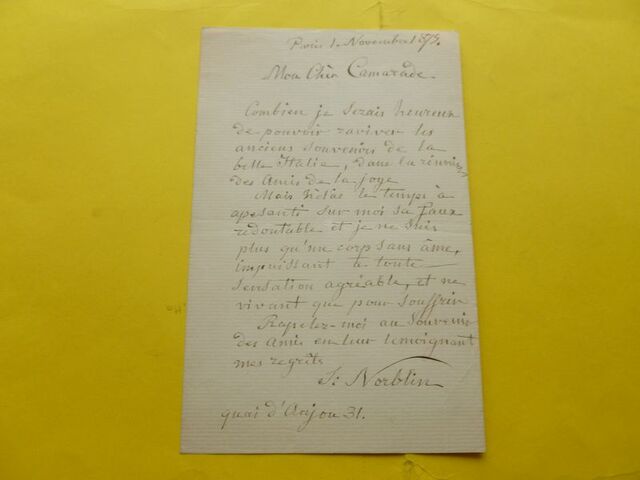 Paris 1. Novembre 1875.
Mon Cher Camarade.
Combien je serais heureux
de pouvoir raviver les
anciens souvenirs de la
belle Italie, dans la réunion
des Amis de la joye
Mais hélas le temps à
apesanti sur moi sa faux
redoutable et je ne suis
plus qu'une corp sans âme,
impuissant de toute
sensation agréable, et ne
vivant que pour souffrir
Rapelez-moi au Souvenir
des Amis en leur temoignant
mes regrets
S: Norblin
quai d'Anjou 31.